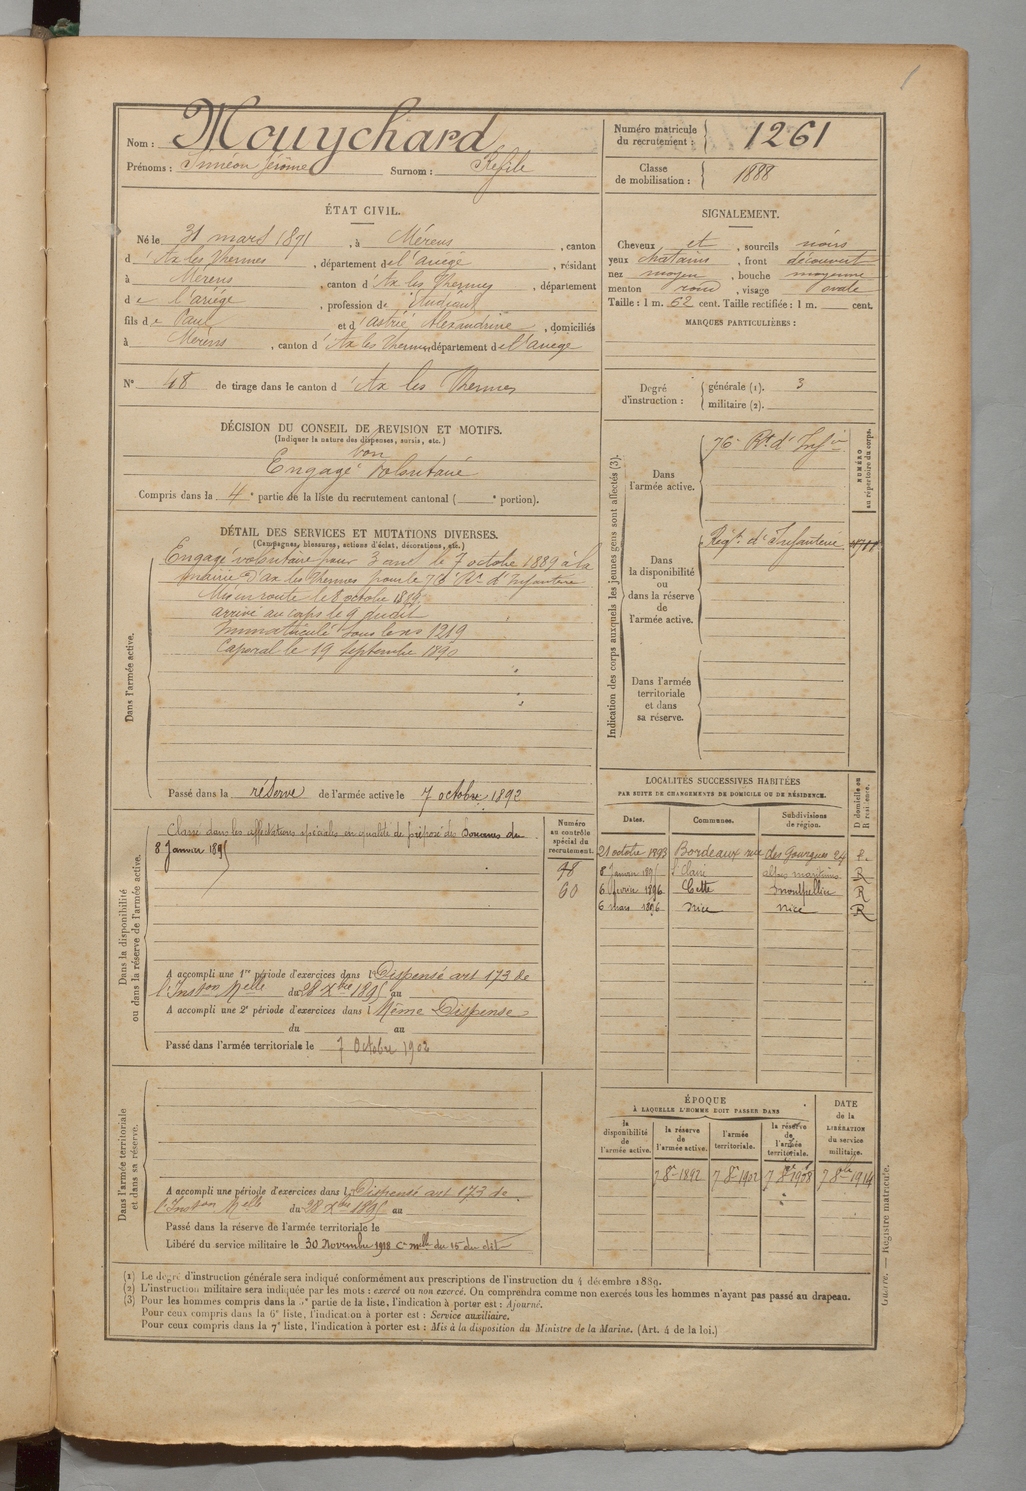 Nom : Mouychard
Prénoms : Siméon Jérôme Surnom : Refile
Numéro matricule du recrutement : 1261
Classe de mobilisation : 1888
ÉTAT CIVIL.
Né le 31 mars 1871, à Mérens, canton
d'Ax les Thermes, département de l'ariège, résidant
à Mérens, canton d'Ax les Thermes, département
de l'ariége, profession de Étudiant
fils de Paul et d'astrié Alexandrine, domiciliés
à Mérens, canton d'Ax les Thermes département de l'ariege
N° 48 de tirage dans le canton d'Ax les Thermes
SIGNALEMENT.
Cheveux et, sourcils noirs
yeux chatains, front découvert
nez moyen, bouche moyenne
menton rond, visage ovale
Taille : 1 m. 62 cent. Taille rectifiée : 1 m. cent.
MARQUES PARTICULIÈRES :
Degré d'instruction : générale (1). 3
militaire (2).
DÉCISION DU CONSEIL DE REVISION ET MOTIFS.
(Indiquer la nature des dispenses, sursis, etc.)
bon
Engagé volontaire
Compris dans la 4e partie de la liste du recrutement cantonal ( e portion).
DÉTAIL DES SERVICES ET MUTATIONS DIVERSES.
(Campagnes, blessures, actions d'éclat, décorations, etc.)
Dans l'armée active.
Engagé volontaire pour 3 ans le 7 octobre 1889 à la
mairie d'Ax les Thermes pour le 76e Rt d'Infanterie
Mis en route le 8 octobre 1889
arrivé au corps le 9 dudit
Immatriculé sous le no 1219
Caporal le 19 septembre 1890
Passé dans la réserve de l'armée active le 7 octobre 1892
Indication des corps auxquels les jeunes gens sont affectés (3).
NUMÉRO au répertoire du corps.
Dans l'armée active.
76e Rt d'Infie
Dans la disponibilité ou dans la réserve de l'armée active.
Régt d'Infanterie
Dans l'armée territoriale et dans sa réserve.
Dans la disponibilité ou dans la réserve de l'armée active.
Numéro au contrôle spécial du recrutement.
Classé dans les affectations spéciales en qualité de préposé des Douanes du
8 Janvier 1895
98
60
A accompli une 1re période d'exercices dans l Dispensé art 173 de
l'Inston Melle du 28 Xbre 1895 au
A accompli une 2e période d'exercices dans l Même Dispense
du au
Passé dans l'armée territoriale le 7 Octobre 1902
LOCALITÉS SUCCESSIVES HABITÉES
PAR SUITE DE CHANGEMENTS DE DOMICILE OU DE RÉSIDENCE.
Dates. Communes. Subdivisions de région. D domicile ou R résidence.
21 octobre 1893 Bordeaux rue des Gourgues 24 R.
8 Janvier 1895 St Claire alpes maritimes R
6 février 1896 Cette Montpellier R
6 mars 1896 Nice Nice R
Dans l'armée territoriale et dans sa réserve.
A accompli une période d'exercices dans l Dispensé art 173 de
l'Inston Melle du 28 Xbre 1895 au
Passé dans la réserve de l'armée territoriale le
Libéré du service militaire le 30 Novembre 1918 Cre mlle du 15 du dit
ÉPOQUE
À LAQUELLE L'HOMME DOIT PASSER DANS
la disponibilité de l'armée active. la réserve de l'armée active. l'armée territoriale. la réserve de l'armée territoriale. DATE de la LIBÉRATION du service militaire.
7 8re 1892 7 8re 1902 7 8re 1908 7 8bre 1914
(1) Le degré d'instruction générale sera indiqué conformément aux prescriptions de l'instruction du 4 décembre 1889.
(2) L'instruction militaire sera indiquée par les mots : exercé ou non exercé. On comprendra comme non exercés tous les hommes n'ayant pas passé au drapeau.
(3) Pour les hommes compris dans la 5e partie de la liste, l'indication à porter est : Ajourné.
Pour ceux compris dans la 6e liste, l'indication à porter est : Service auxiliaire.
Pour ceux compris dans la 7e liste, l'indication à porter est : Mis à la disposition du Ministre de la Marine. (Art. 4 de la loi.)
Guerre. — Registre matricule.